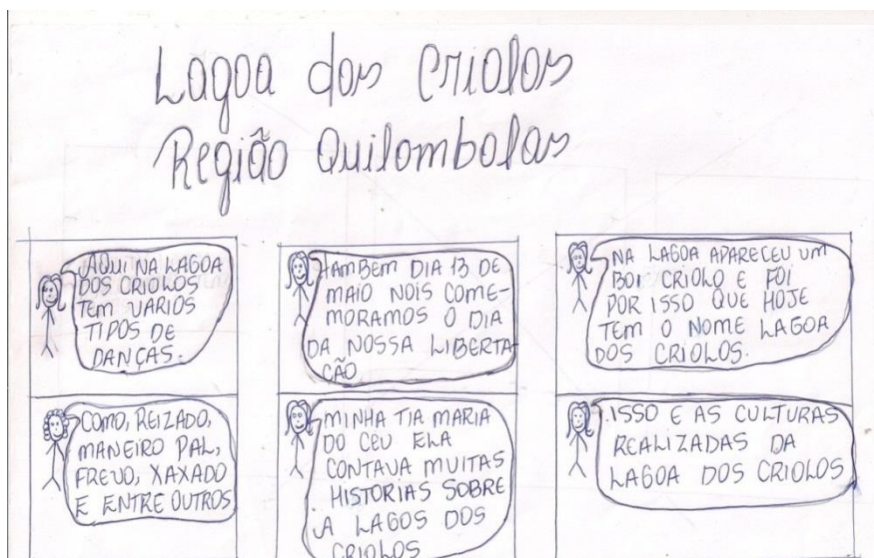 Lagoa dos Criolos
Região Quilombolas
AQUI NA LAGOA
DOS CRIOLOS
TEM VARIOS
TIPOS DE
DANÇAS.
COMO, REIZADO,
MANEIRO PAL,
FREVO, XAXADO
E ENTRE OUTROS
TAMBEM DIA 13 DE
MAIO NOIS COME-
MORAMOS O DIA
DA NOSSA LIBERTA-
CÃO
MINHA TIA MARIA
DO CEU ELA
CONTAVA MUITAS
HISTORIAS SOBRE
A LAGOS DOS
CRIOLOS
NA LAGOA APARECEU UM
BOI CRIOLO E FOI
POR ISSO QUE HOJE
TEM O NOME LAGOA
DOS CRIOLOS.
ISSO E AS CULTURAS
REALIZADAS DA
LAGOA DOS CRIOLOS